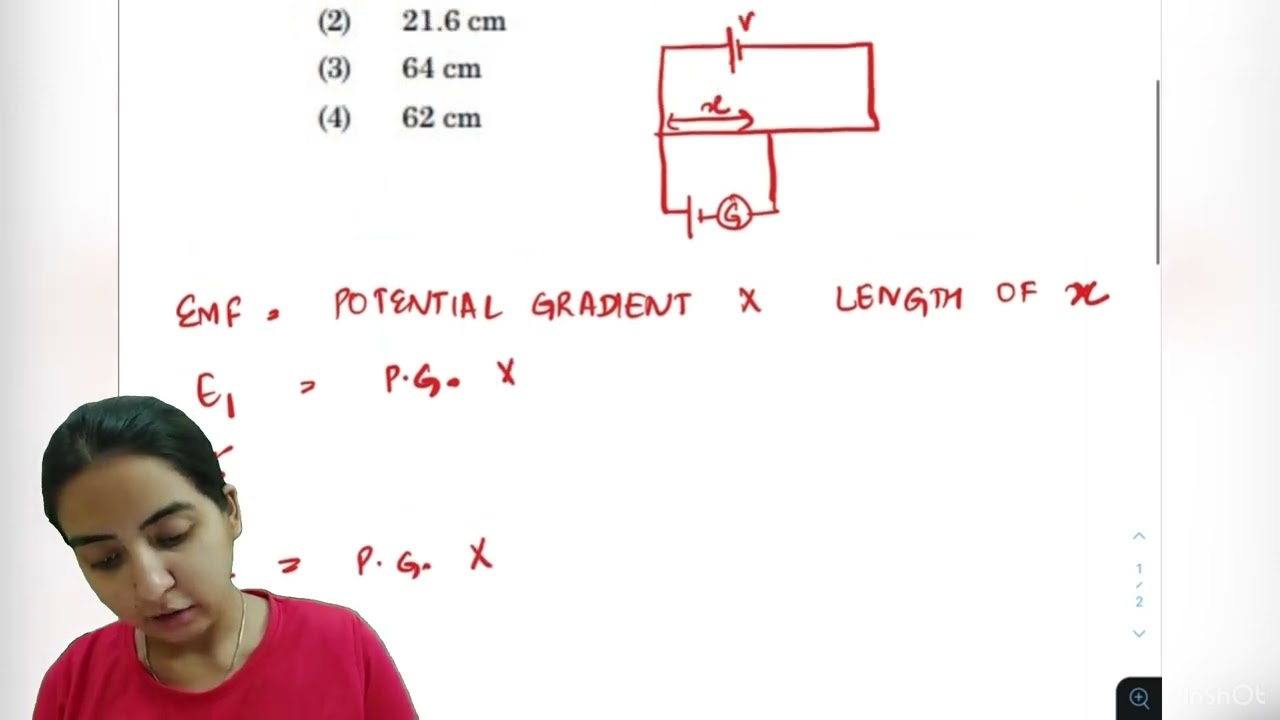 (2) 21.6 cm
(3) 64 cm
(4) 62 cm
V
x
G
EMF = POTENTIAL GRADIENT X LENGTH OF x
E1 = P.G. X
= P.G. X
1
/
2
InShOt